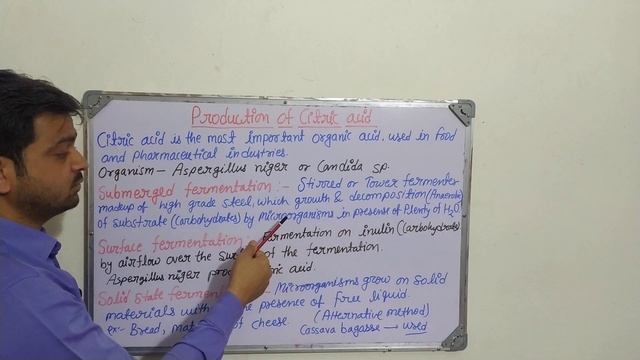 Production of Citric acid
Citric acid is the most important organic acid, used in food
and pharmaceutical industries.
Organism - Aspergillus niger or Candida sp.
Submerged fermentation :- Stirred or Tower fermenter
makeup of high grade steel, which growth & decomposition (Anaerobic)
of substrate (carbohydrates) by microorganisms in presense of Plenty of H2O.
Surface fermentation fermentation on inulin (carbohydrates)
by airflow over the of the fermentation.
Aspergillus niger acid.
Solid state Microorganisms grow on solid
materials presence of free liquid.
ex:- Bread, of cheese. (Alternative method)
Cassava bagasse → used